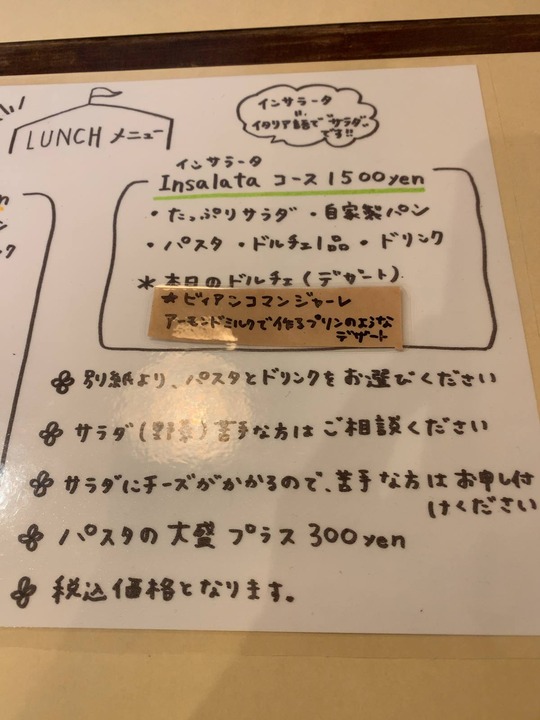 LUNCH メニュー
インサラータ
"
イタリア語で"サラダ"
です!!
インサラータ
Insalata コース 1500yen
・たっぷりサラダ ・自家製パン
・パスタ ・ドルチェ1品 ・ドリンク
＊本日のドルチェ(デザート)
★ビィアンコマンジャーレ
アーモンドミルクで作るプリンのような
デザート
別紙より、パスタとドリンクをお選びください
サラダ(野菜)苦手な方はご相談ください
サラダにチーズがかかるので、苦手な方はお申し付
けください
パスタの大盛 プラス 300yen
税込価格となります。